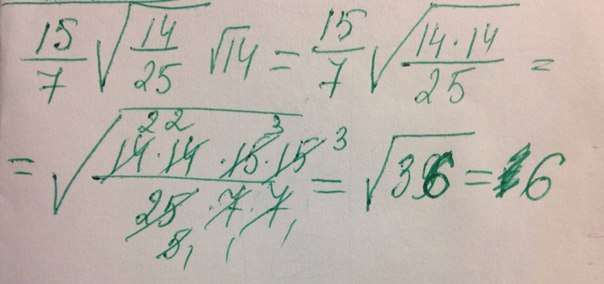 15/7 √(14/25) √14 = 15/7 √(14·14/25) =
= √(14·14·15·15/25·7·7) = √36 = 6